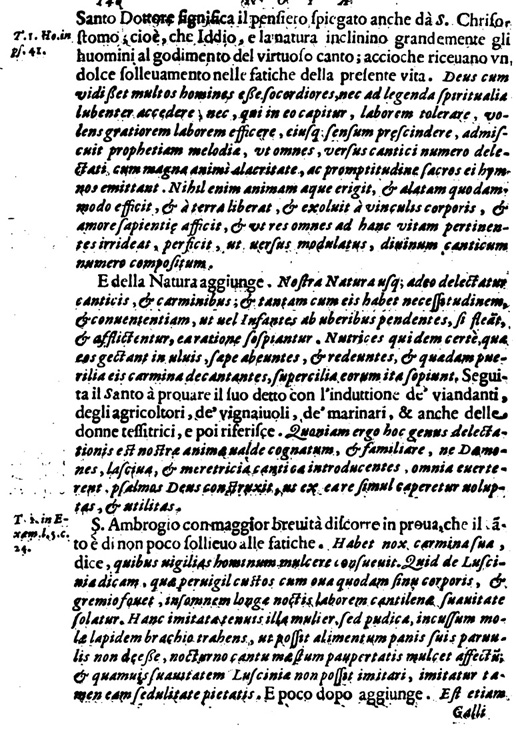 Santo Dottore significa il pensiero spiegato anche dà S. Chriso-
T. 1. Ho. in
ps. 41.
stomo; cioè, che Iddio, e la natura inclinino grandemente gli
huomini al godimento del virtuoso canto; accioche riceuano vn
dolce solleuamento nelle fatiche della presente vita. Deus cum
vidisset multos homines esse socordiores, nec ad legenda spiritualia
lubenter accedere, nec, qui in eo capitur, laborem tolerare, vo-
lens gratiorem laborem efficere, eiusq. sensum prescindere, admis-
cuit prophetiam melodia, vt omnes, versus cantici numero dele-
ctati, cum magna animi alacritate, ac promptitudine sacros ei hym-
nos emittant. Nihil enim animam aque erigit, & alatam quodam
modo efficit, & à terra liberat, & exoluit à vinculis corporis, &
amore sapientiæ afficit, & vt res omnes ad hanc vitam pertinen-
tes irrideat, perficit, ut uersus modulatus, diuinum canticum
numero compositum.
E della Natura aggiunge. Nostra Natura usq; adeo delectatur
canticis, & carminibus; & tantam cum eis habet necessitudinem,
& conuenientiam, ut uel Infantes ab uberibus pendentes, si fleāt,
& afflictentur, ea ratione sospiantur. Nutrices quidem certè, quæ
eos gectant in uluis, sæpe abeuntes, & redeuntes, & quadam pue-
rilia eis carmina decantantes, supercilia eorum ita sopiunt. Segui-
ta il Santo à prouare il suo detto con l'induttione de' viandanti,
degli agricoltori, de' vignaiuoli, de' marinari, & anche delle
donne tessitrici, e poi riferisce. Quoniam ergo hoc genus delecta-
tionis est nostræ animæ ualde cognatum, & familiare, ne Dæmo-
nes, lasciua, & meretricia cantica introducentes, omnia euerte-
rent, psalmos Deus construxit, ut ex ea re simul caperetur volup-
tas, & utilitas.
T. 1. in E-
xam. l. 5. c.
24.
S. Ambrogio con maggior breuità discorre in proua, che il cā-
to è di non poco sollieuo alle fatiche. Habet nox carmina sua,
dice, quibus uigilias hominum mulcere consueuit. Quid de Lusci-
nia dicam, quæ peruigil custos cum oua quodam sinu corporis, &
gremio fouet, insomnem longæ noctis laborem cantilenæ suauitate
solatur. Hanc imitata tenuis illa mulier, sed pudica, incussum mo-
læ lapidem brachio trahens, ut possit alimentum panis suis paruu-
lis non deesse, nocturno cantu mæstum paupertatis mulcet affectū;
& quamuis suauitatem Luscinia non possit imitari, imitatur ta-
men eam sedulitate pietatis. E poco dopo aggiunge. Est etiam
Galli